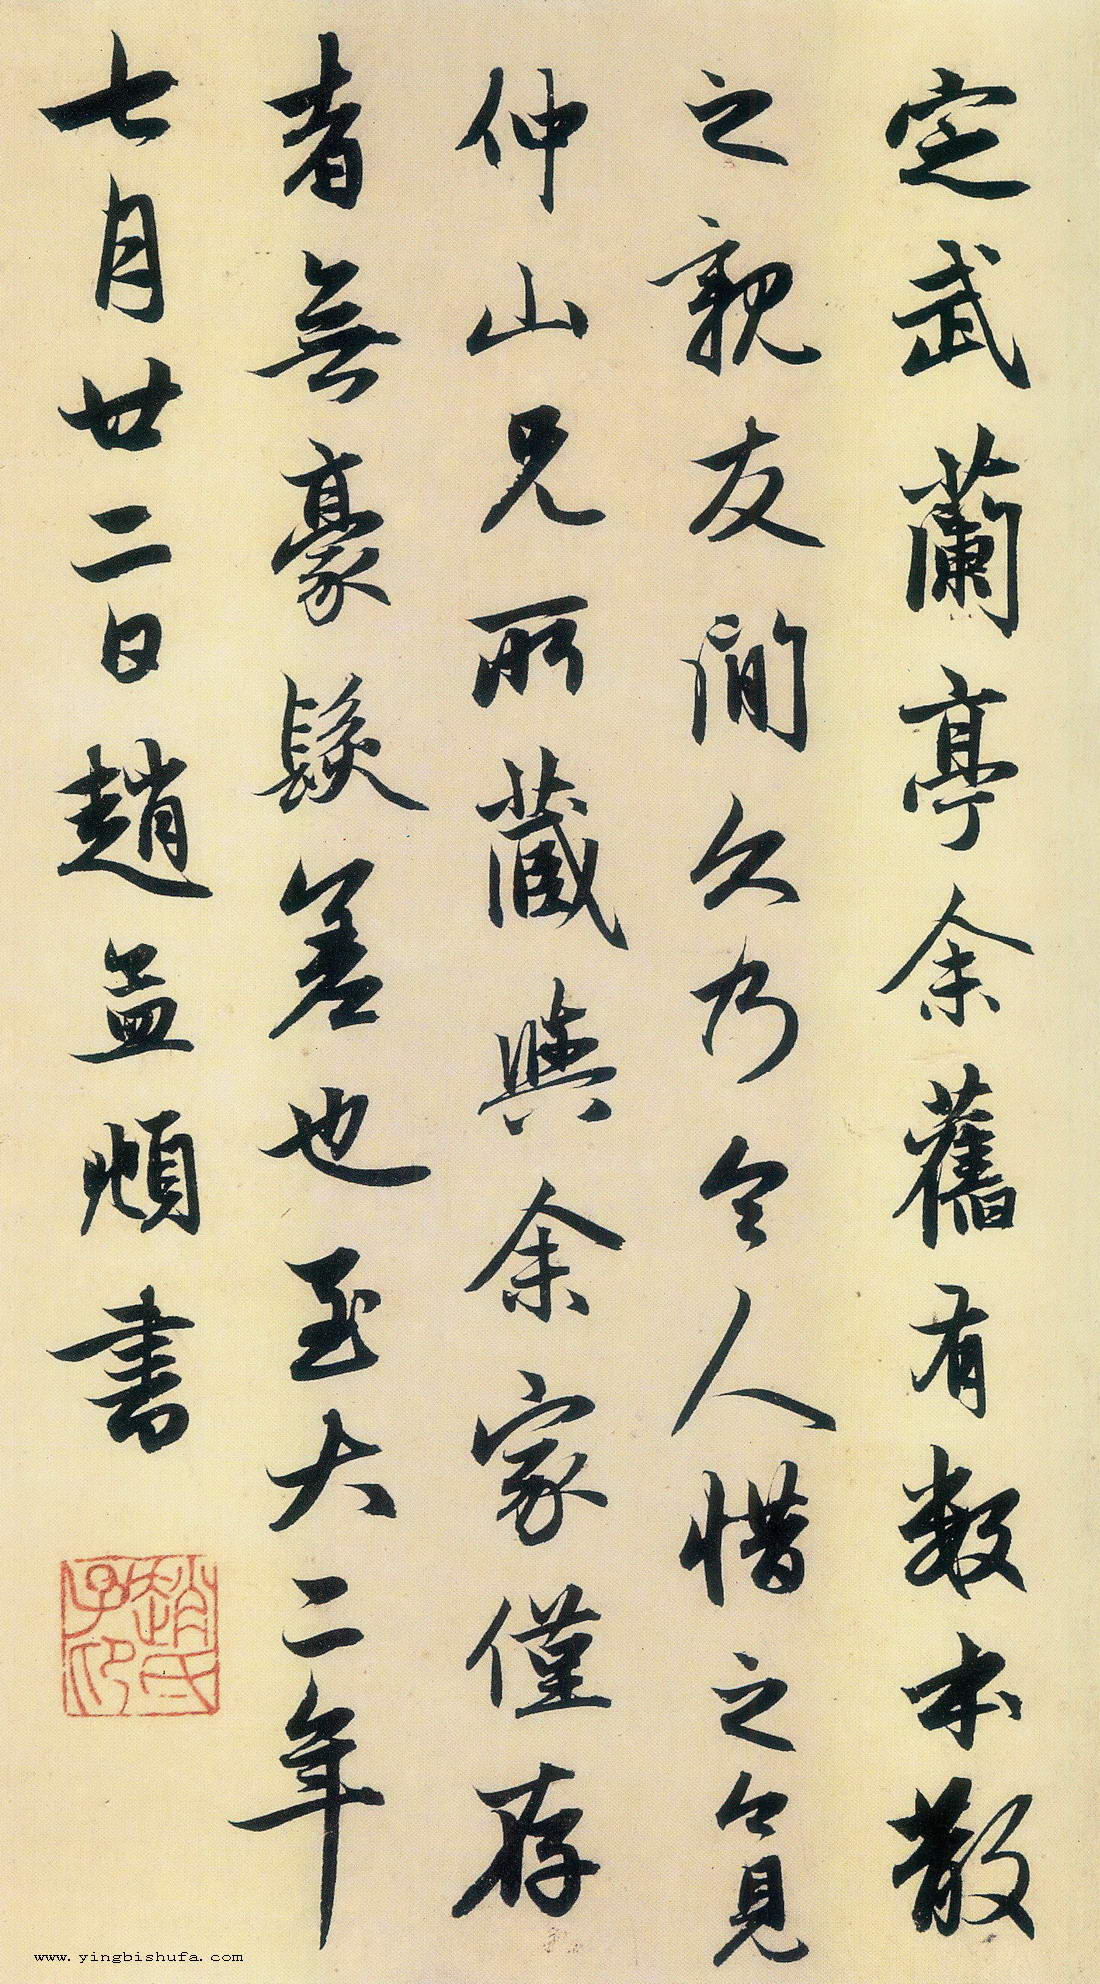 定武蘭亭余舊有數本散
之親友間久乃令人惜之今見
仲山兄所藏與余家僅存
者無豪髮差也至大二年
七月廿二日趙孟頫書
趙氏子印
www.yingbishufa.com